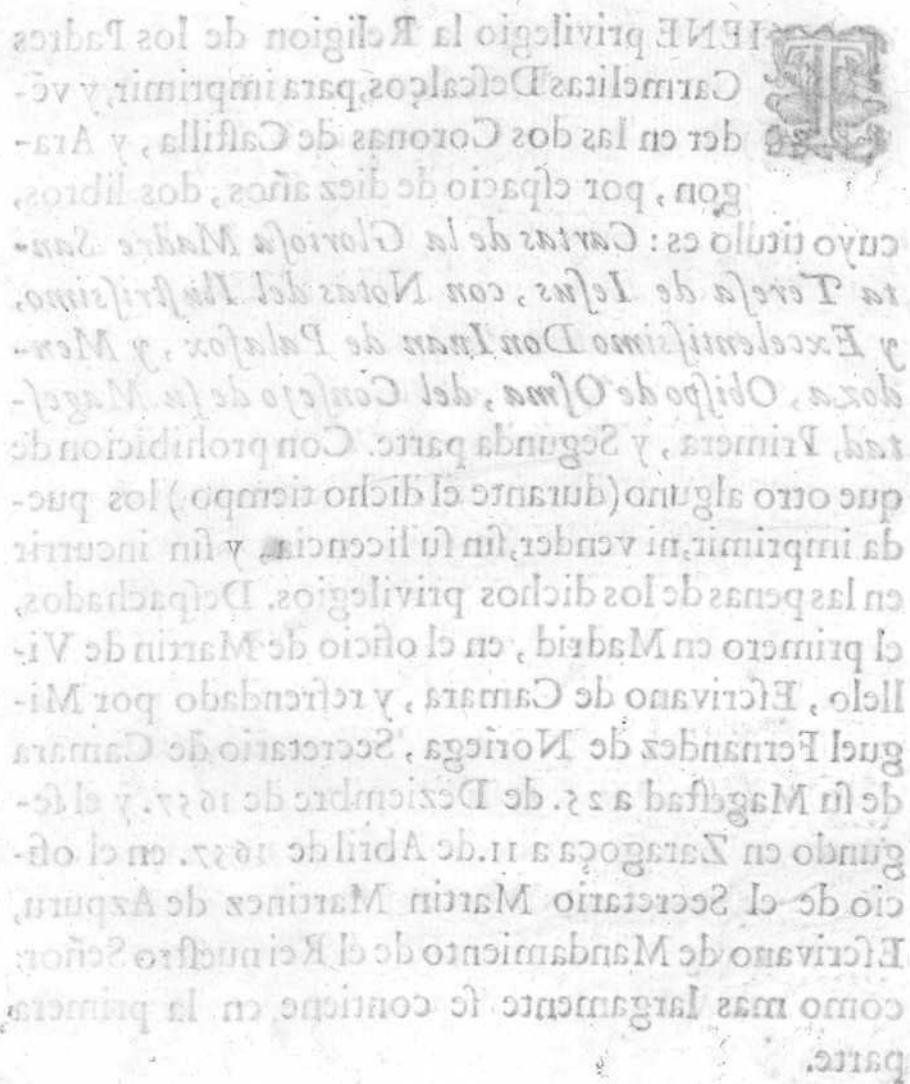 TIENE privilegio la Religion de los Padres
Carmelitas Descalços, para imprimir, y vē-
der en las dos Coronas de Castilla, y Ara-
gon, por espacio de diez años, dos libros,
cuyo titulo es: Cartas de la Gloriosa Madre San-
ta Teresa de Iesus, con Notas del Ilustrissimo,
y Excelentissimo Don Iuan de Palafox, y Men-
doza, Obispo de Osma, del Consejo de su Mages-
tad, Primera, y Segunda parte. Con prohibicion de
que otro alguno (durante el dicho tiempo) los pue-
da imprimir, ni vender, sin su licencia, y sin incurrir
en las penas de los dichos privilegios. Despachados,
el primero en Madrid, en el oficio de Martin de Vi-
llelo, Escrivano de Camara, y refrendado por Mi-
guel Fernandez de Noriega, Secretario de Camara
de su Magestad a 25. de Deziembre de 1657. y el se-
gundo en Zaragoça a 11. de Abril de 1657. en el ofi-
cio de el Secretario Martin Martinez de Azpuru,
Escrivano de Mandamiento de el Rei nuestro Señor;
como mas largamente se contiene en la primera
parte.